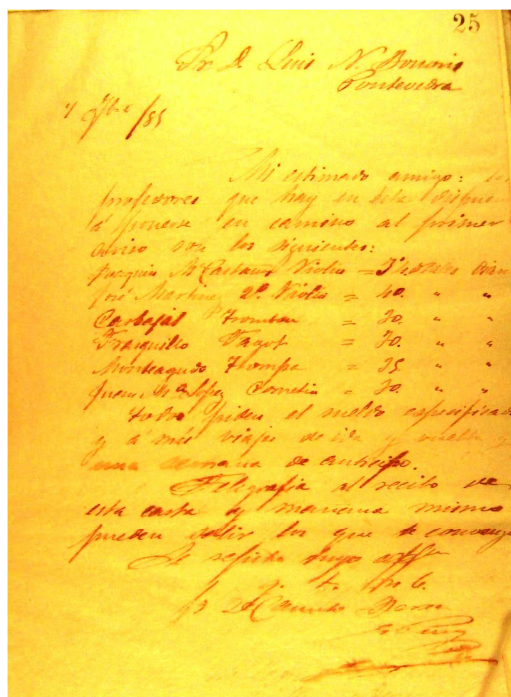 25
Sr D. Luis N.
Pontevedra
7bre /85
Mi estimado amigo: los
profesores que hay en esta
á ponerse en camino al primer
aviso son los siguientes:
Joaquin Violin =
José Martinez 2º Violin = 40 " "
Carbajal Trombon = 30 " "
Fagot = 30 " "
Monteagudo Trompa = 35 " "
Juan Mª Lopez Cornetin = 30 " "
todos piden el sueldo especificado
y á más viaje de ida y vuelta y
una semana de anticipo.
Telegrafia al recibo de
esta carta y mañana mismo
pueden salir los que te convenga
Se repite suyo affmo
q. b. s. m.